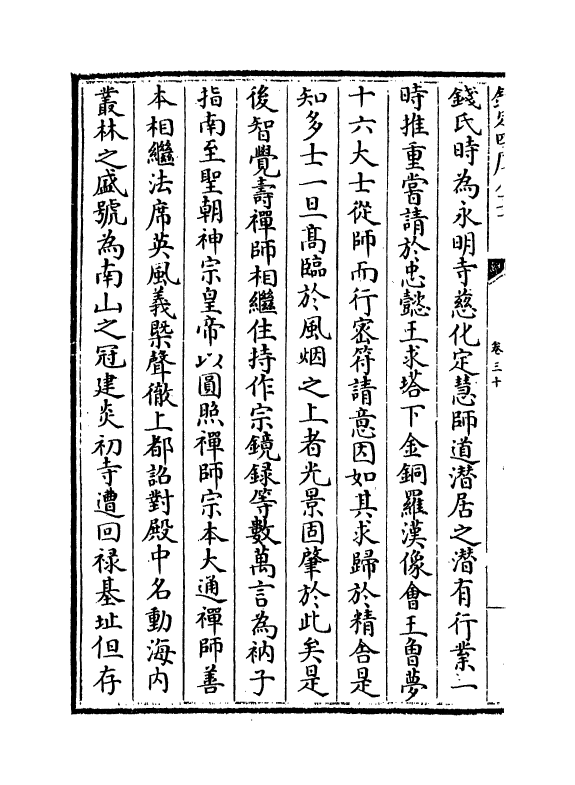 卷三十
錢氏時為永明寺慈化定慧師道潛居之潛有行業一
時推重嘗請於忠懿王求塔下金銅羅漢像會王魯夢
十六大士從師而行密符請意因如其求歸於精舍是
知多士一旦高臨於風烟之上者光景固肇於此矣是
後智覺壽禪師相繼住持作宗鏡録等數萬言為衲子
指南至聖朝神宗皇帝以圓照禪師宗本大通禪師善
本相繼法席英風義槩聲徹上都詔對殿中名動海内
叢林之盛號為南山之冠建炎初寺遭回禄基址但存